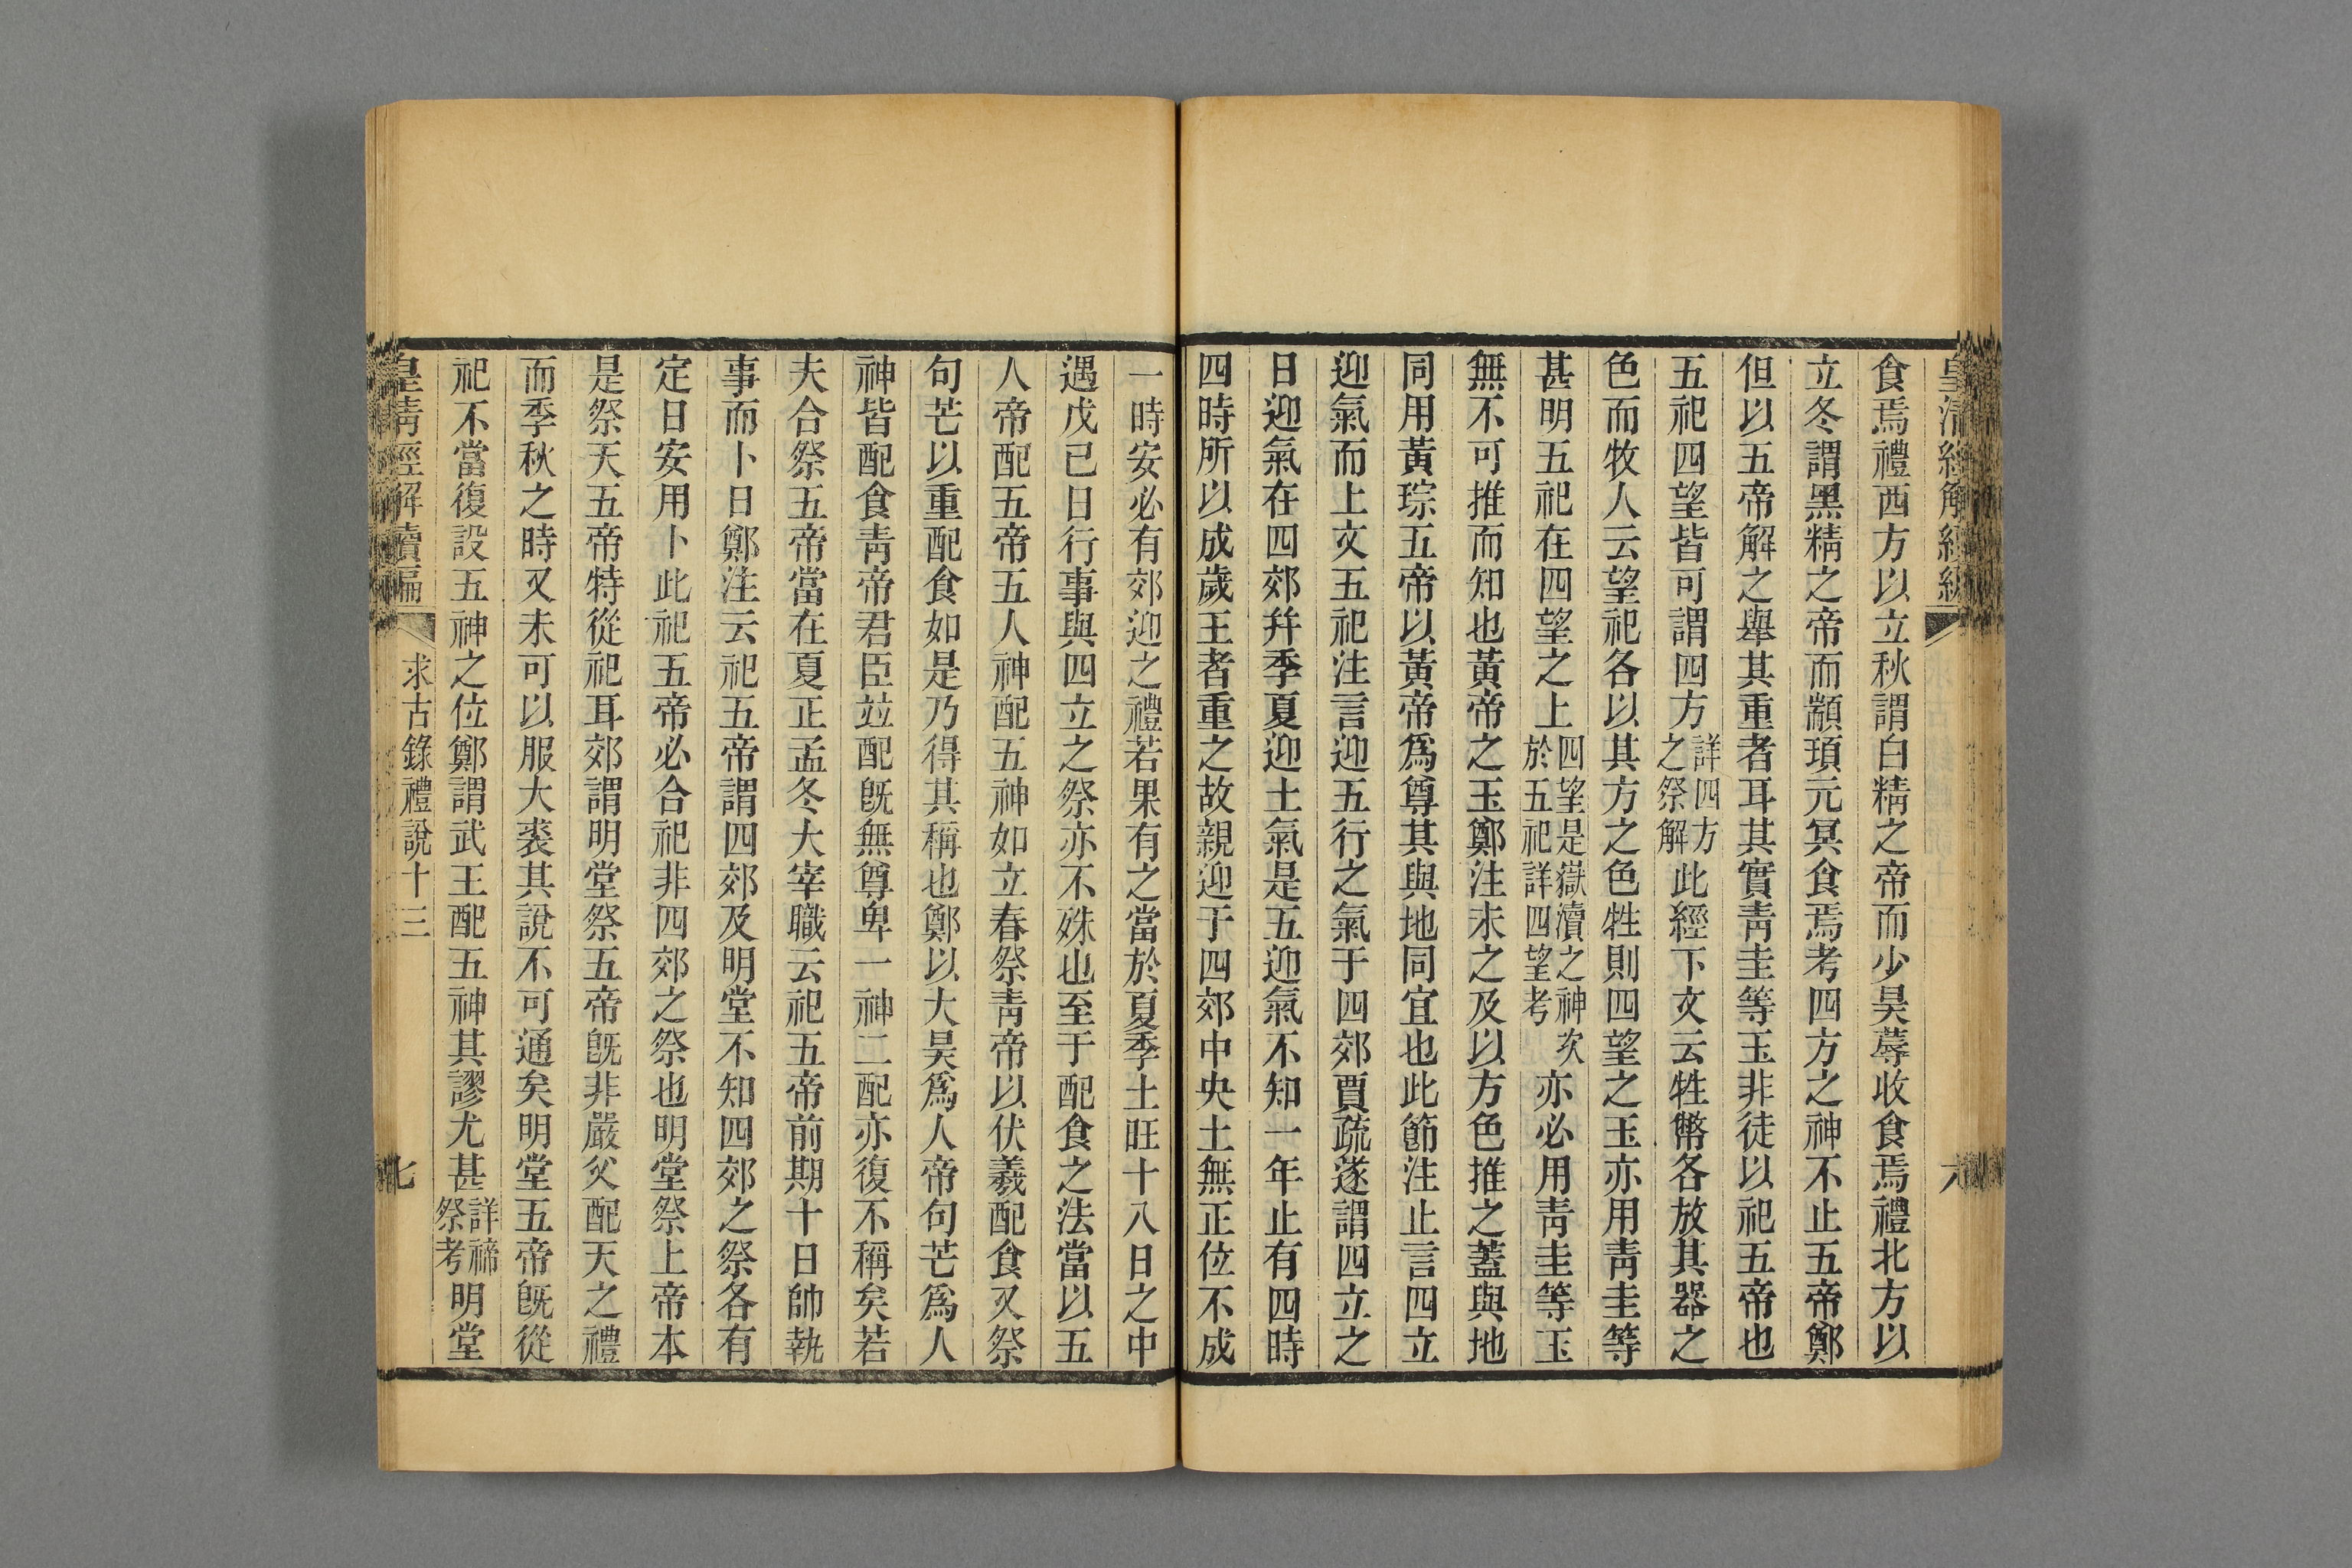 食焉禮西方以立秋謂白精之帝而少昊蓐收食焉禮北方以
立冬謂黑精之帝而顓頊元冥食焉考四方之神不止五帝鄭
但以五帝解之舉其重者耳其實靑圭等玉非徒以祀五帝也
五祀四望皆可謂四方詳四方之祭解此經下文云牲幣各放其器之
色而牧人云望祀各以其方之色牲則四望之玉亦用靑圭等
甚明五祀在四望之上四望是嶽瀆之神次於五祀詳四望考亦必用靑圭等玉
無不可推而知也黃帝之玉鄭注未之及以方色推之蓋與地
同用黃琮五帝以黃帝爲尊其與地同宜也此節注止言四立
迎氣而上文五祀注言迎五行之氣于四郊賈疏遂謂四立之
日迎氣在四郊幷季夏迎土氣是五迎氣不知一年止有四時
四時所以成歲王者重之故親迎于四郊中央土無正位不成
一時安必有郊迎之禮若果有之當於夏季土旺十八日之中
遇戊己日行事與四立之祭亦不殊也至于配食之法當以五
人帝配五帝五人神配五神如立春祭靑帝以伏羲配食又祭
句芒以重配食如是乃得其稱也鄭以大昊爲人帝句芒爲人
神皆配食靑帝君臣竝配旣無尊卑一神二配亦復不稱矣若
夫合祭五帝當在夏正孟冬大宰職云祀五帝前期十日帥執
事而卜日鄭注云祀五帝謂四郊及明堂不知四郊之祭各有
定日安用卜此祀五帝必合祀非四郊之祭也明堂祭上帝本
是祭天五帝特從祀耳郊謂明堂祭五帝旣非嚴父配天之禮
而季秋之時又未可以服大裘其說不可通矣明堂五帝旣從
祀不當復設五神之位鄭謂武王配五神其謬尤甚詳禘祭考明堂
皇淸經解續編
求古錄禮說十三
七